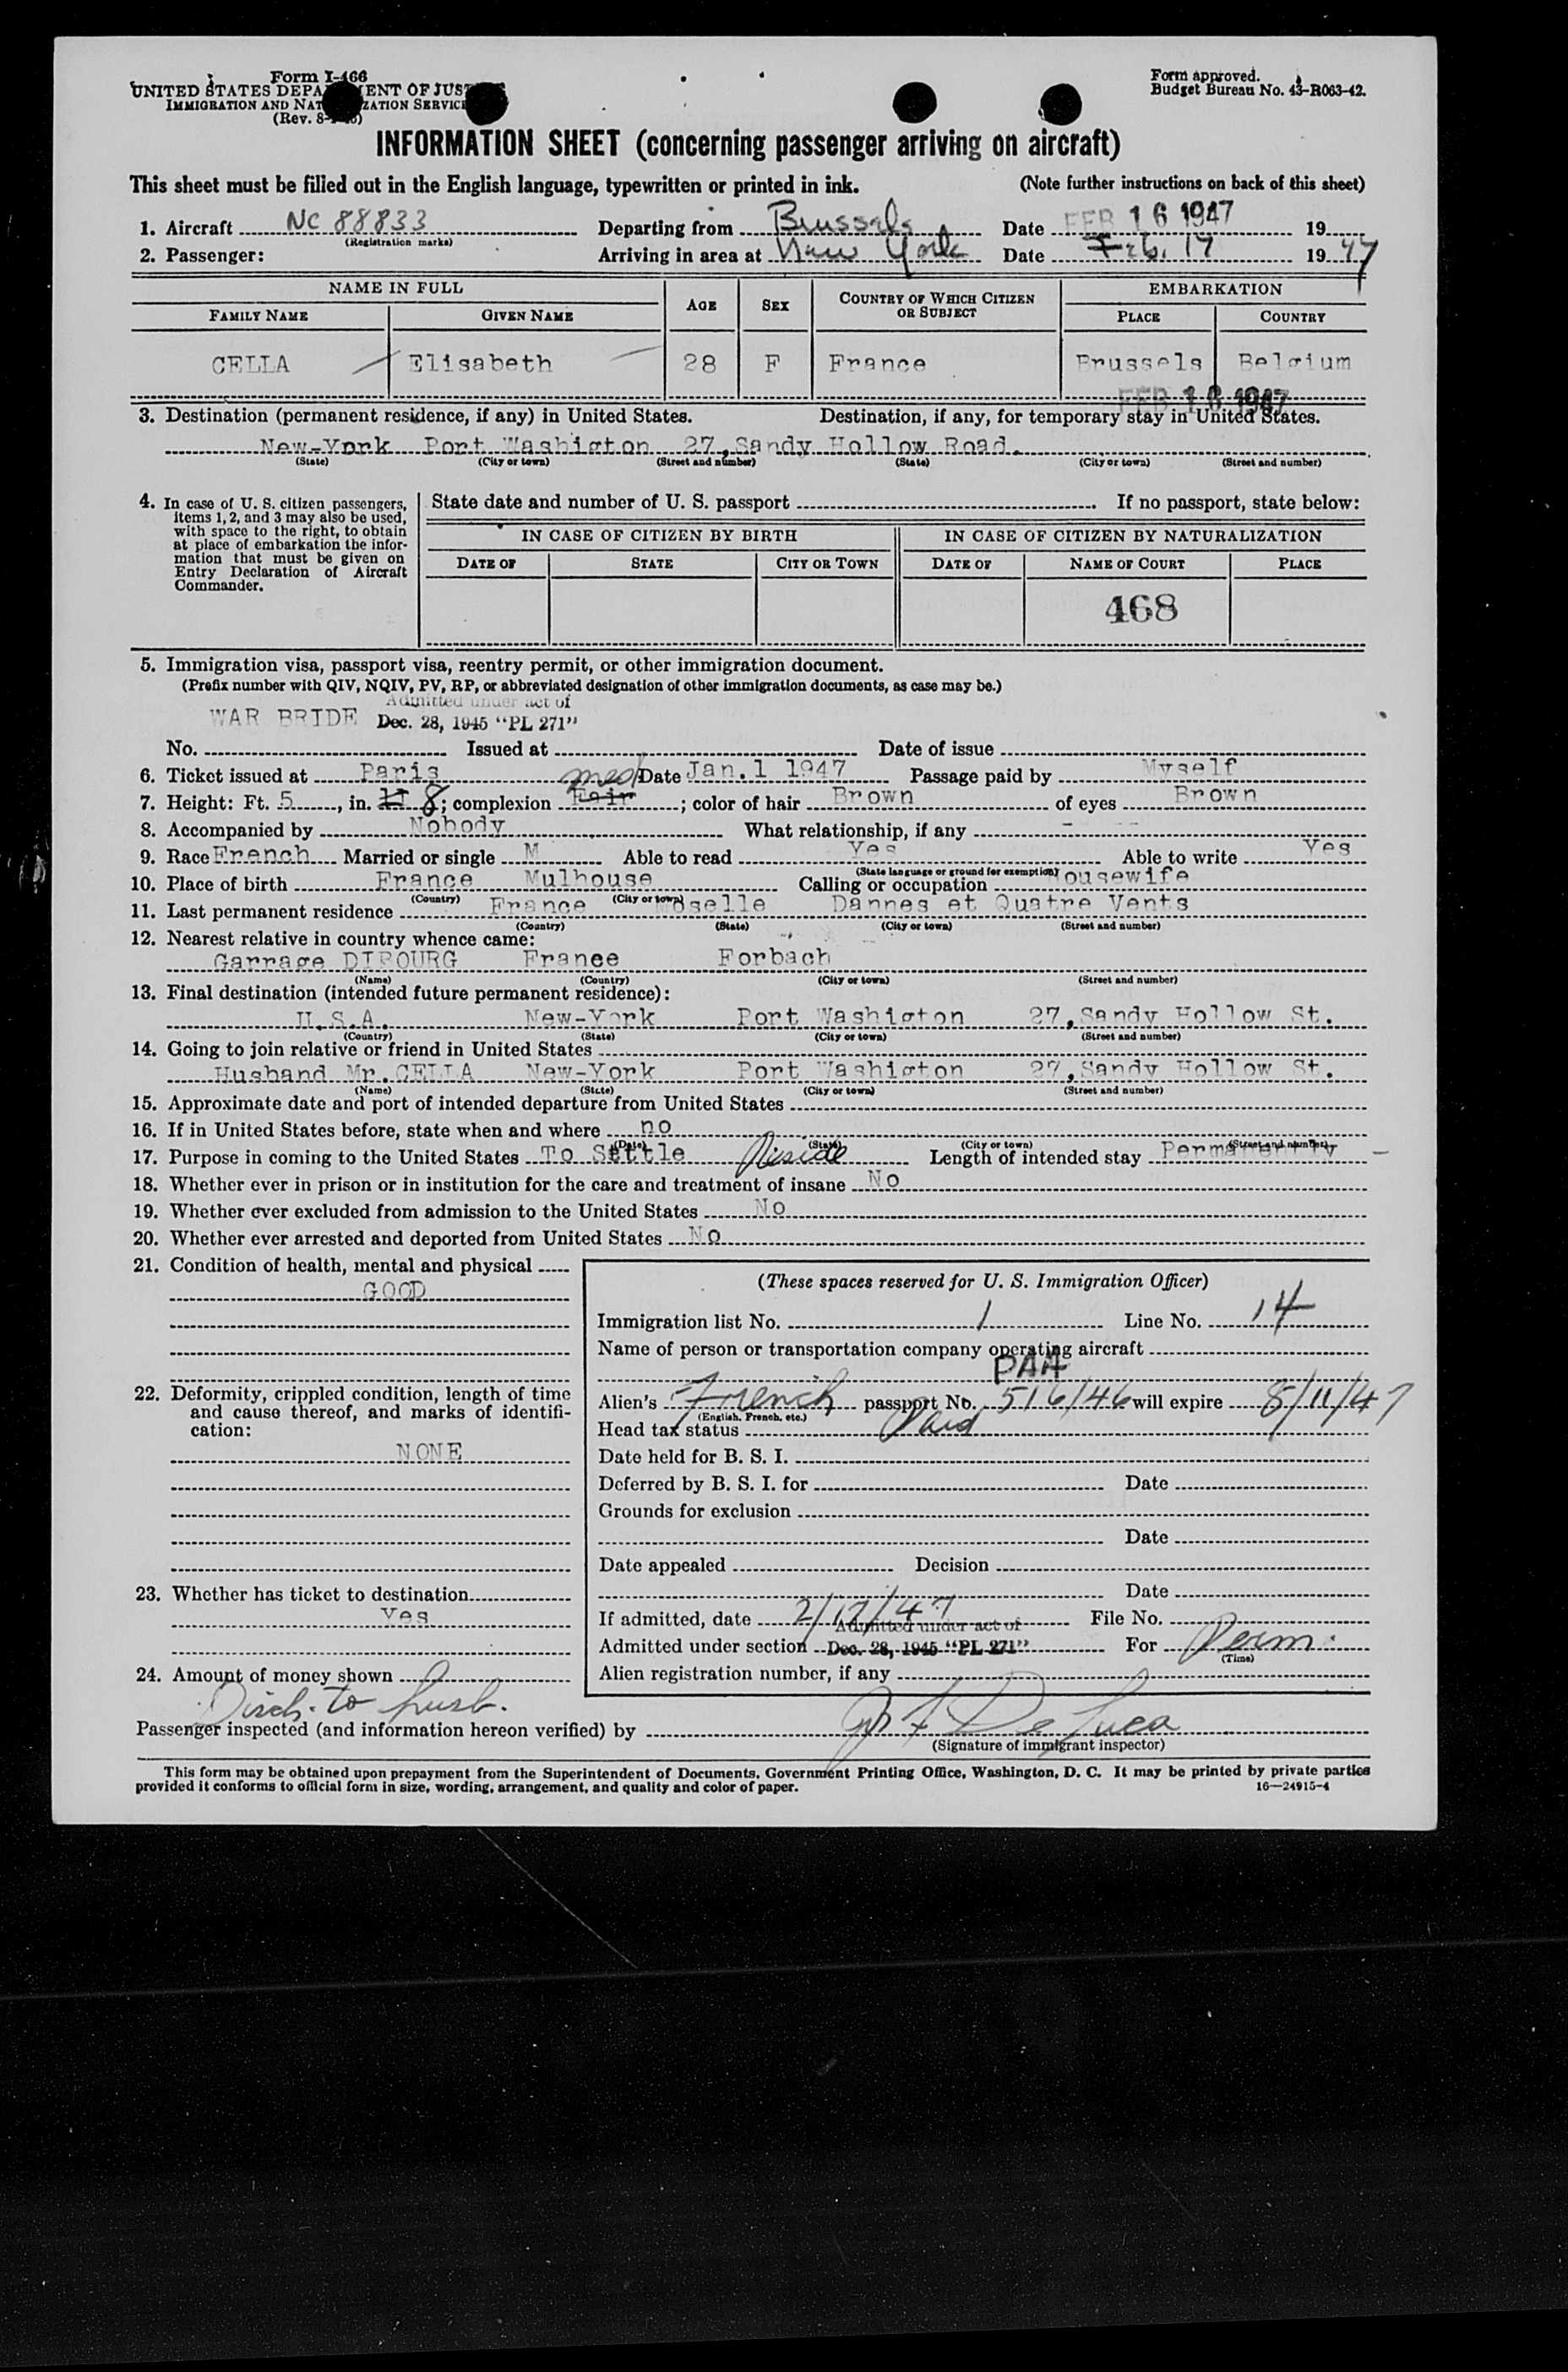 Form I-466
UNITED STATES DEPA ENT OF JUS
IMMIGRATION AND NAT ZATION SERVICE
(Rev. 8-
Form approved.
Budget Bureau No. 43-R063-42.
INFORMATION SHEET (concerning passenger arriving on aircraft)
This sheet must be filled out in the English language, typewritten or printed in ink. (Note further instructions on back of this sheet)
1. Aircraft NC 88833 Departing from Brussels Date FEB 16 1947 19
(Registration marks)
2. Passenger: Arriving in area at New York Date Feb. 17 1947
NAME IN FULL AGE SEX COUNTRY OF WHICH CITIZEN OR SUBJECT EMBARKATION
FAMILY NAME GIVEN NAME PLACE COUNTRY
CELLA Elisabeth 28 F France Brussels Belgium
FEB 16 1947
3. Destination (permanent residence, if any) in United States. Destination, if any, for temporary stay in United States.
New-York Port Washigton 27,Sandy Hollow Road.
(State) (City or town) (Street and number) (State) (City or town) (Street and number)
4. In case of U. S. citizen passengers, items 1, 2, and 3 may also be used, with space to the right, to obtain at place of embarkation the information that must be given on Entry Declaration of Aircraft Commander.
State date and number of U. S. passport . If no passport, state below:
IN CASE OF CITIZEN BY BIRTH IN CASE OF CITIZEN BY NATURALIZATION
DATE OF STATE CITY OR TOWN DATE OF NAME OF COURT PLACE
468
5. Immigration visa, passport visa, reentry permit, or other immigration document.
(Prefix number with QIV, NQIV, PV, RP, or abbreviated designation of other immigration documents, as case may be.)
Admitted under act of
WAR BRIDE Dec. 28, 1945 "PL 271"
No. Issued at Date of issue
6. Ticket issued at Paris Date Jan.1 1947 Passage paid by Myself
7. Height: Ft. 5, in. 8; complexion Fair med; color of hair Brown of eyes Brown
8. Accompanied by Nobody What relationship, if any -
9. Race French Married or single M Able to read Yes Able to write Yes
(State language or ground for exemption)
10. Place of birth France Mulhouse Calling or occupation Housewife
(Country) (City or town)
11. Last permanent residence France Moselle Dannes et Quatre Vents
(Country) (State) (City or town) (Street and number)
12. Nearest relative in country whence came:
Garrage DIBOURG France Forbach
(Name) (Country) (City or town) (Street and number)
13. Final destination (intended future permanent residence):
U.S.A. New-York Port Washigton 27,Sandy Hollow St.
(Country) (State) (City or town) (Street and number)
14. Going to join relative or friend in United States
Husband Mr.CELLA New-York Port Washigton 27,Sandy Hollow St.
(Name) (State) (City or town) (Street and number)
15. Approximate date and port of intended departure from United States
16. If in United States before, state when and where no
(Date) (State) (City or town) (Street and number)
17. Purpose in coming to the United States To Settle Reside Length of intended stay Permanently
18. Whether ever in prison or in institution for the care and treatment of insane No
19. Whether ever excluded from admission to the United States No
20. Whether ever arrested and deported from United States No
21. Condition of health, mental and physical
GOOD
22. Deformity, crippled condition, length of time and cause thereof, and marks of identification:
NONE
23. Whether has ticket to destination
Yes
24. Amount of money shown 0
Disch. to husb.
(These spaces reserved for U. S. Immigration Officer)
Immigration list No. 1 Line No. 14
Name of person or transportation company operating aircraft
PAA
Alien's French passport No. 516/46 will expire 8/11/47
(English, French, etc.)
Head tax status Paid
Date held for B. S. I.
Deferred by B. S. I. for Date
Grounds for exclusion
Date
Date appealed Decision
Date
If admitted, date 2/17/47 File No.
Admitted under act of
Admitted under section Dec. 28, 1945 "PL 271" For Perm.
(Time)
Alien registration number, if any
Passenger inspected (and information hereon verified) by De Luca
(Signature of immigrant inspector)
This form may be obtained upon prepayment from the Superintendent of Documents, Government Printing Office, Washington, D. C. It may be printed by private parties
provided it conforms to official form in size, wording, arrangement, and quality and color of paper. 16—24915-4